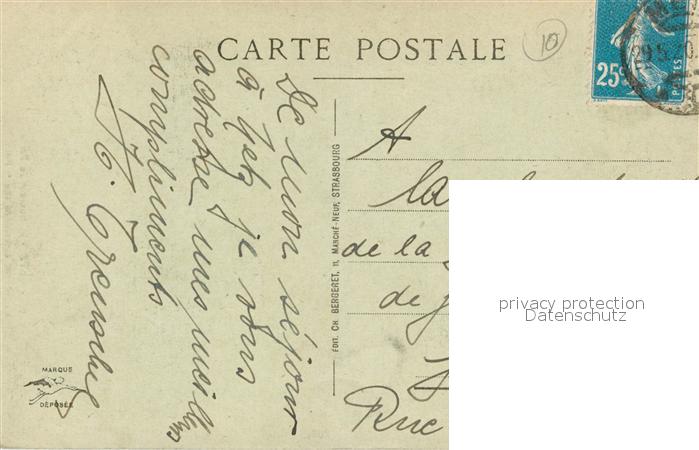 CARTE POSTALE
10
25c
POSTES
De mon séjour
à Metz je vous
adresse mes meill
eurs
compliments
A
la
de la
de
Rue
ÉDIT. CH. BERGERET, 11, MARCHÉ-NEUF, STRASBOURG
MARQUE
DÉPOSÉE
privacy protection
Datenschutz